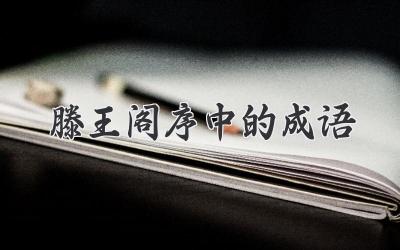 滕王阁序中的成语